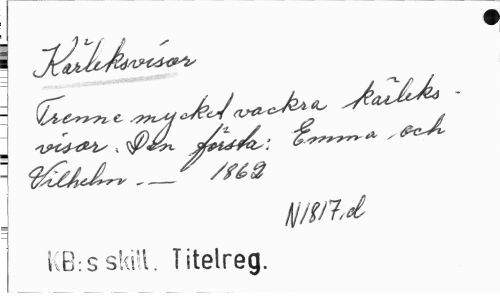 Kärleksvisor
Trenne mycket vackra kärleks-
visor. Den första: Emma och
Vilhelm. — 1862
N1817,d
KB:s skill. Titelreg.